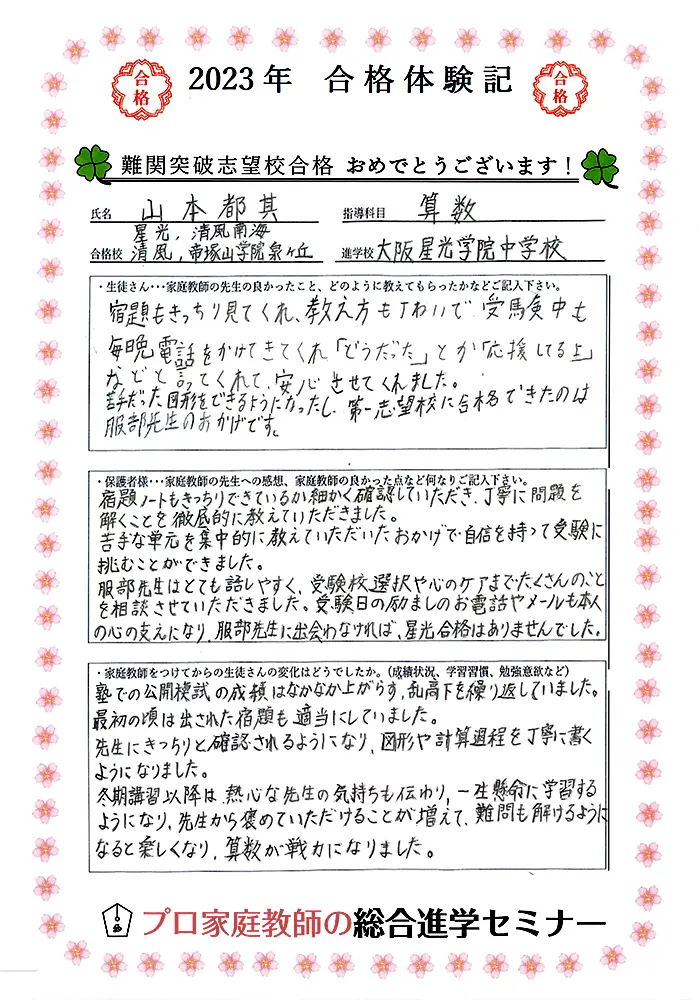 合格
2023年 合格体験記
合格
難関突破志望校合格 おめでとうございます!
氏名 山本都其 指導科目 算数
星光, 清風南海
合格校 清風, 帝塚山学院泉ヶ丘 進学校 大阪星光学院中学校
・生徒さん・・・家庭教師の先生の良かったこと、どのように教えてもらったかなどご記入下さい。
宿題もきっちり見てくれ、教え方も丁ねいで 受験中も
毎晩電話をかけてきてくれ「どうだった」とか「応援してるよ」
などと言ってくれて、安心させてくれました。
苦手だった図形をできるようになったし、第一志望校に合格できたのは
服部先生のおかげです。
・保護者様・・・家庭教師の先生への感想、家庭教師の良かった点など何なりご記入下さい。
宿題ノートもきっちりできているか細かく確認していただき、丁寧に問題を
解くことを徹底的に教えていただきました。
苦手な単元を集中的に教えていただいたおかげで自信を持って受験に
挑むことができました。
服部先生はとても話しやすく、受験校選択や心のケアまでたくさんのこと
を相談させていただきました。受験日の励ましのお電話やメールも本人
の心の支えになり、服部先生に出会わなければ、星光合格はありませんでした。
・家庭教師をつけてからの生徒さんの変化はどうでしたか。(成績状況、学習習慣、勉強意欲など)
塾での公開模試の成績はなかなか上がらず、乱高下を繰り返していました。
最初の頃は出された宿題も適当にしていました。
先生にきっちりと確認されるようになり、図形や計算過程を丁寧に書く
ようになりました。
冬期講習以降は、熱心な先生の気持ちも伝わり、一生懸命に学習する
ようになり、先生から褒めていただけることが増えて、難問も解けるように
なると楽しくなり、算数が戦力になりました。
プロ家庭教師の総合進学セミナー